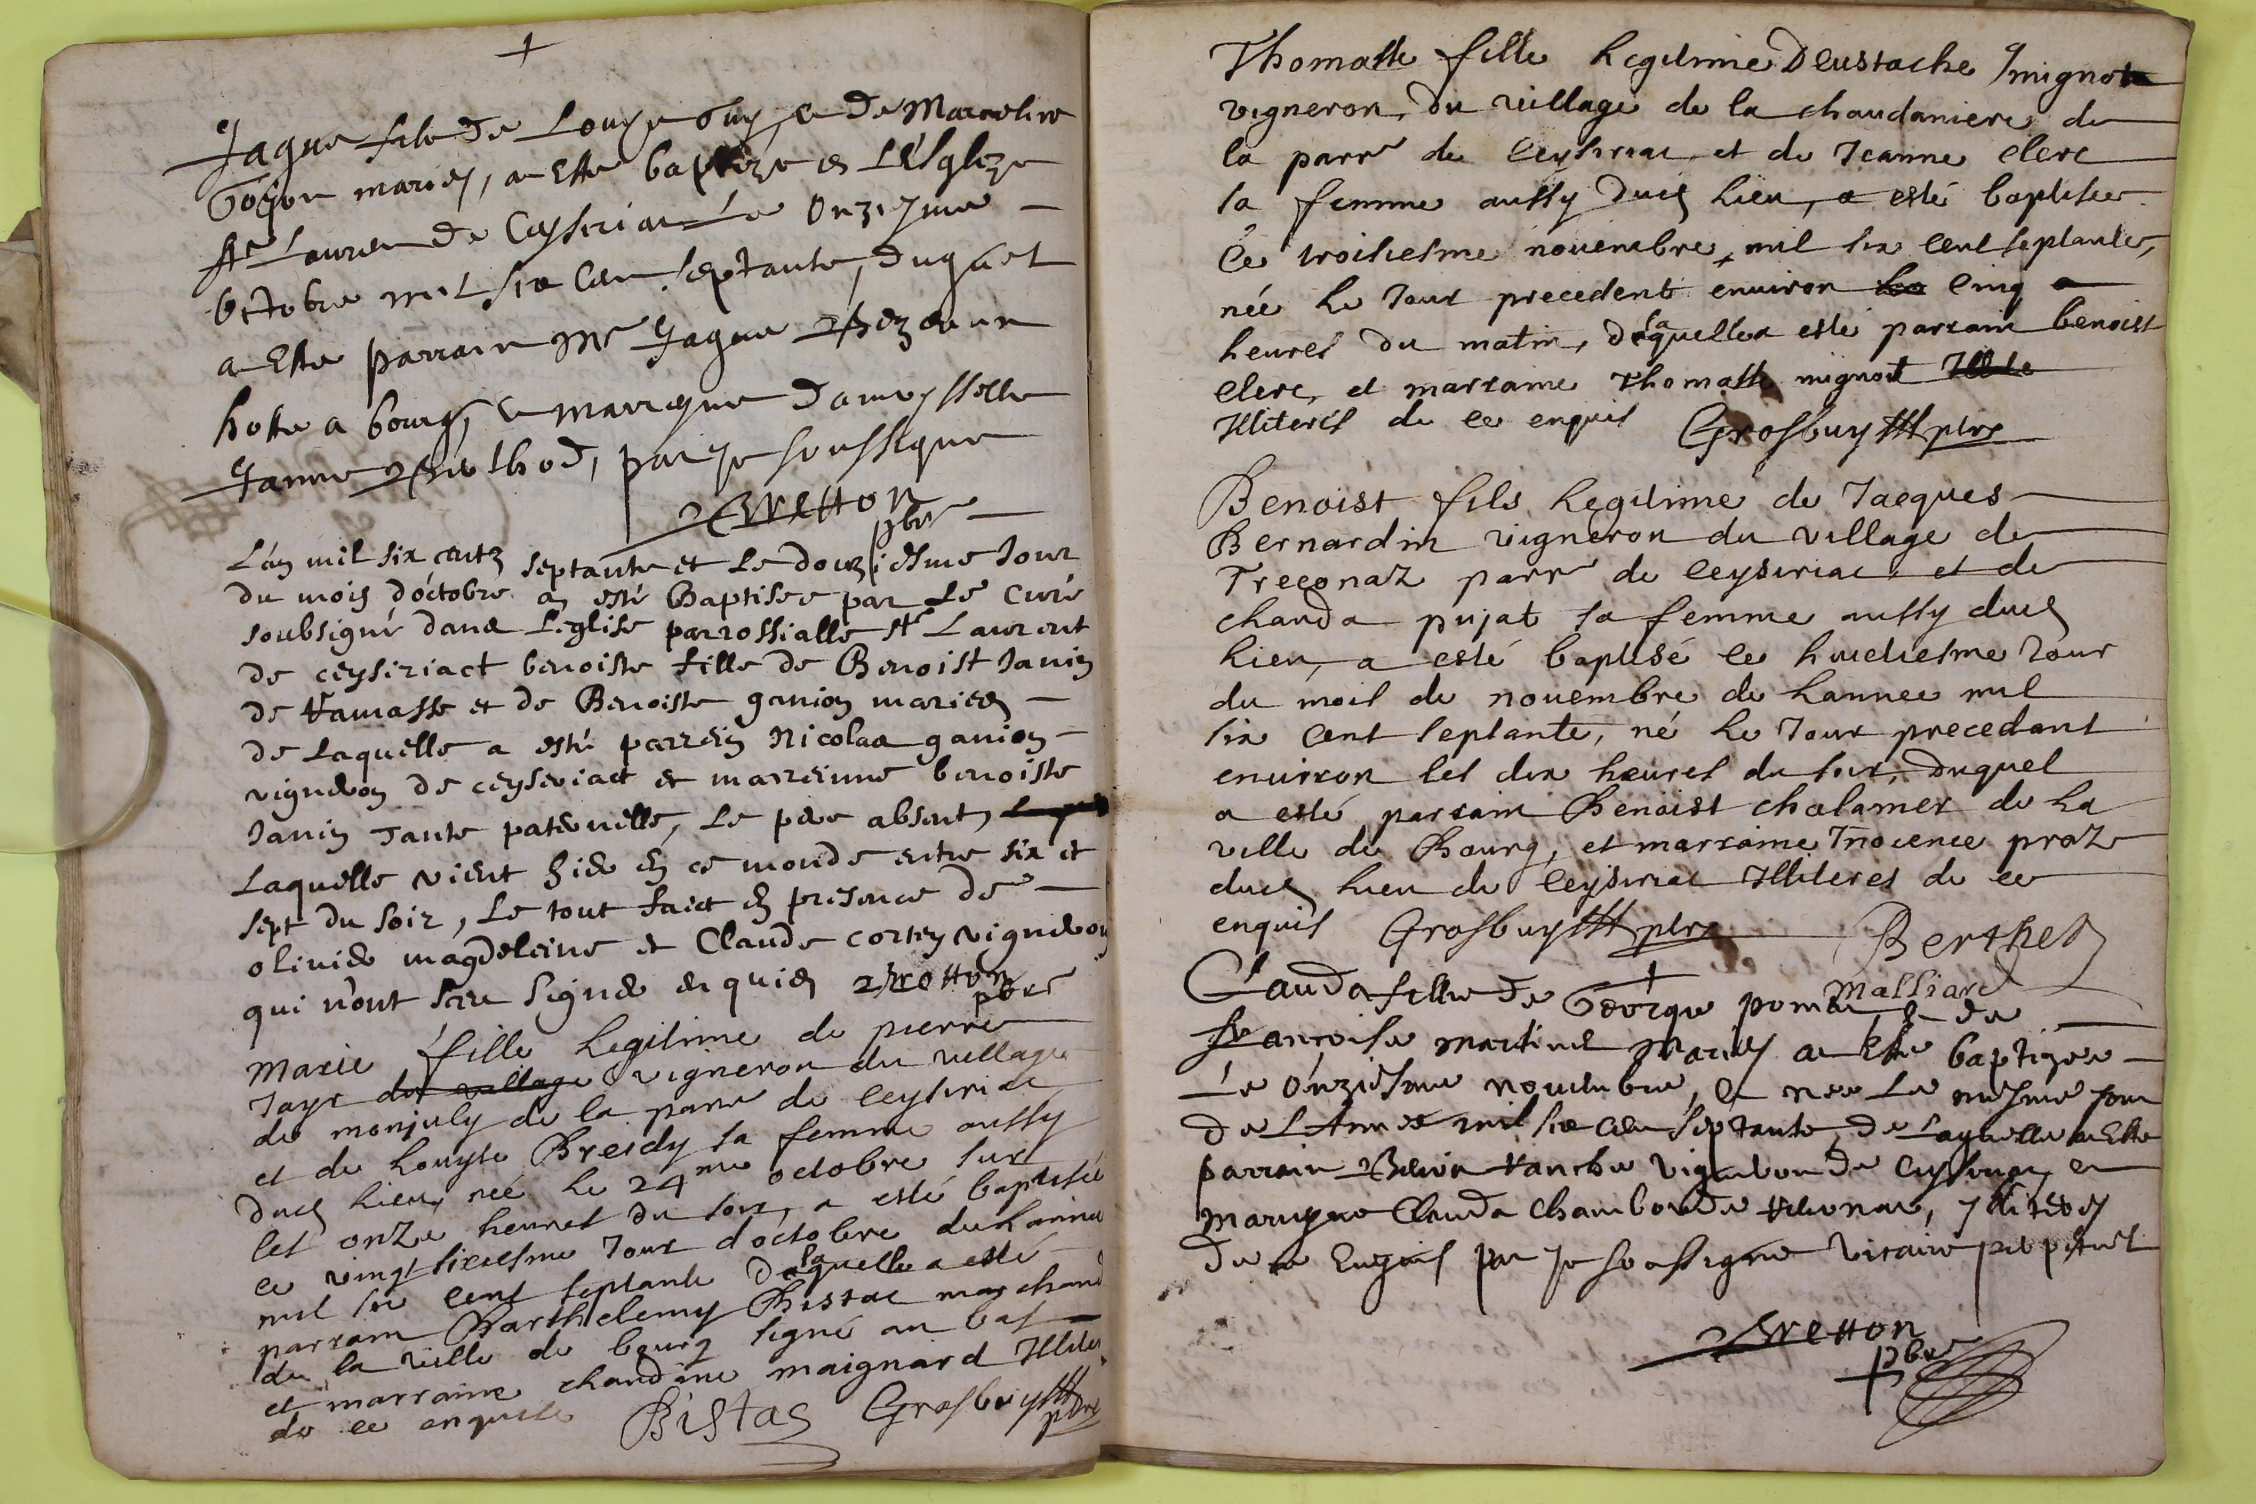 Jaque fils de Louys Guy, e de Marceline
Goyon mariés, a esté baptize en L'Esglize
St Lauren de Ceyseriat Le Onziesme
Octobre mil six Cen septante, duquel
a esté parrain Mr Jaque
hoste a bourg, e marreyne damoysselle
Janne, par je soussigne
Bretton
pbre
L'an mil six centz septante et Le douziesme Jour
du mois d'octobre a esté Baptisee par Le Curé
soubsigné dans L'eglise parrossialle st Laurent
de ceyseriact benoiste fille de Benoist Janin
de et de Benoiste ganion mariés
de Laquelle a esté parrein Nicolas ganion
vigneron de ceyseriact et marreinne benoiste
Janin Tante paternelle, Le pere absent
Laquelle vient hier en ce monde entre six et
sept du soir, Le tout faict en presence de
olivier magdeleine et Claude cortey vigneron
qui n'ont sceu signer enquis Bretton
pbre
Marie fille Legitime de pierre
Jayr du village vigneron du village
de monjuly de la parre de Ceyseriac
et de Louyse Breidy sa femme aussy
dud lieu, née le 24me octobre sur
les onze heures du soir, a esté baptisée
ce vingt sixiesme Jour d'octobre de Lannee
mil six cent septante de laquelle a esté
parrain Barthelemy Bistac marchand
de la ville de bourg signé au bas
et marraine chaudine maignard Illiter
de ce enquise Bistac Grosbuy ptre
Thomasse fille Legitime D'eustache mignot
vigneron, du village de la chaudaniere de
la parre de Ceyseriac et de Jeanne Clerc
sa femme aussy dud lieu, a esté baptisée
Ce troisiesme nouembre, mil six Cent septante,
née Le Jour precedent enuiron les Cinq
heures du matin, de laquelle a esté parrain benoist
Clerc, et marraine Thomasse mignot
Illiterés de ce enquis Grosbuy ptre
Benoist fils Legitime de Jacques
Bernardin vigneron du village de
Treconaz parre de Ceyseriac et de
chauda pujat sa femme aussy dud
Lieu, a esté baptisé ce huictiesme Jour
du mois de nouembre de Lannee mil
six Cent septante, né Le Jour precedant
enuiron les dix heures du soir, duquel
a esté parrain Benoist chalamer de La
ville de Bourg, et marraine Innocence praze
dud lieu de Ceyseriac Illiteres de ce
enquis Grosbuy ptre Berthet
Malliard
Clauda fille de George pomat, e de
Françoise martinet mariés a esté baptizee
Le Onziesme nouembre, e nee Le mesme jour
de L'Annee mil six cen septante, de Laquelle a esté
parrain vigneron de Ceyseriat, e
marreyne Clauda Chambourde, ylliterés
de ce Enquis par je soussigne Vicaire perpetuel
Bretton
pbre